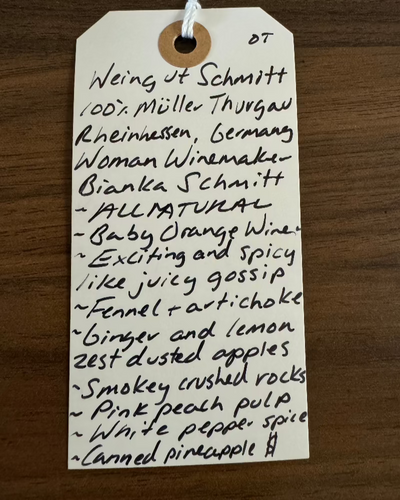 DT
Weingut Schmitt
100% Müller Thurgau
Rheinhessen, Germany
Woman Winemaker
Bianka Schmitt
~ ALL NATURAL
~ Baby Orange Wine
~ Exciting and spicy
like juicy gossip
~ Fennel + artichoke
~ Ginger and lemon
zest dusted apples
~ Smokey crushed rocks
~ Pink peach pulp
~ White pepper spice
~ Canned pineapple